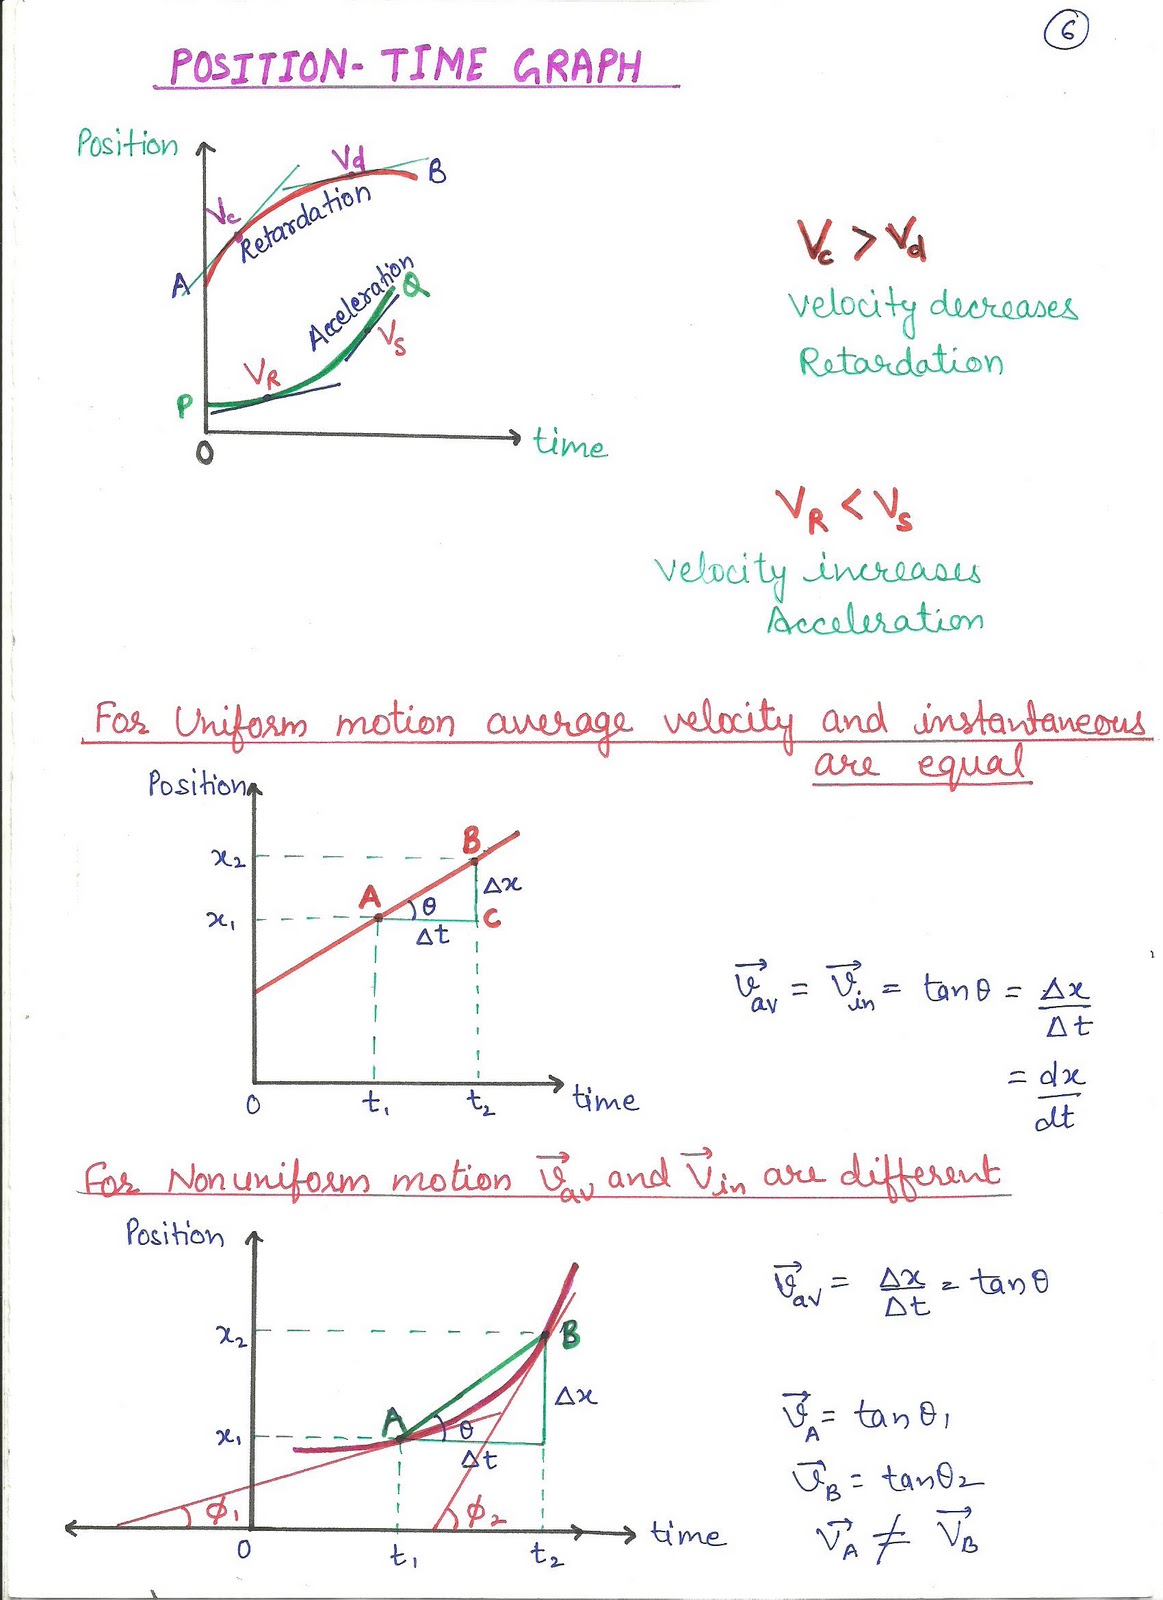 6
POSITION-TIME GRAPH
Position
Vd
B
Vc
Retardation
A
Acceleration
Q
VS
VR
P
O
time
Vc > Vd
Velocity decreases
Retardation
VR < Vs
Velocity increases
Acceleration
For Uniform motion average velocity and instantaneous
are equal
Position
x2
B
Δx
A
θ
x1
C
Δt
0
t1
t2
time
v⃗av = v⃗in = tanθ = Δx/Δt
= dx/dt
For Nonuniform motion v⃗av and v⃗in are different
Position
x2
B
Δx
A
θ
x1
Δt
ϕ1
ϕ2
0
t1
t2
time
v⃗av = Δx/Δt = tanθ
v⃗A = tanθ1
v⃗B = tanθ2
v⃗A ≠ v⃗B